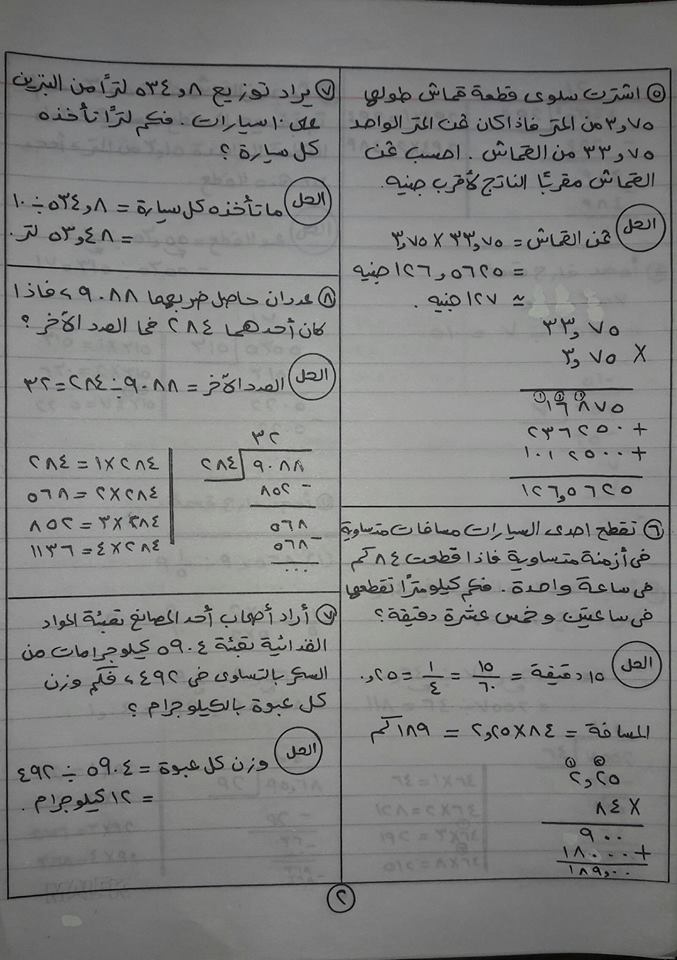 ٥ اشترت سلوى قطعة قماش طولها
٣,٧٥ من المتر فاذا كان ثمن المتر الواحد
٣٣,٧٥ من القماش . احسب ثمن
القماش مقربًا الناتج لأقرب جنيه.
الحل
ثمن القماش = ٣٣,٧٥ × ٣,٧٥
= ١٢٦,٥٦٢٥ جنيه
≈ ١٢٧ جنيه .
٣٣,٧٥
٣,٧٥ ×
١٦٨٧٥
٢٣٦٢٥٠ +
١٠١٢٥٠٠ +
١٢٦,٥٦٢٥
٦ تقطع احدى السيارات مسافات متساوية
فى أزمنة متساوية فاذا قطعت ٨٤ كم
فى ساعة واحدة . فكم كيلومترًا تقطعها
فى ساعتين و خمس عشرة دقيقة ؟
الحل
١٥ دقيقة = ١٥/٦٠ = ١/٤ = ٠,٢٥
المسافة = ٨٤ × ٢,٢٥ = ١٨٩ كم
٢,٢٥
٨٤ ×
٩٠٠
١٨٠٠٠ +
١٨٩,٠٠
٧ يراد توزيع ٥٣٤,٨ لترًا من البنزين
على ١٠ سيارات . فكم لترًا تأخذه
كل سيارة ؟
الحل
ما تأخذه كل سيارة = ٥٣٤,٨ ÷ ١٠
= ٥٣,٤٨ لتر.
٨ عددان حاصل ضربهما ٩٠٨٨ ، فاذا
كان أحدهما ٢٨٤ فما العدد الآخر ؟
الحل
العدد الآخر = ٩٠٨٨ ÷ ٢٨٤ = ٣٢
٣٢
٢٨٤ ٩٠٨٨
٨٥٢ -
٥٦٨
٥٦٨ -
٠٠٠
٢٨٤ × ١ = ٢٨٤
٢٨٤ × ٢ = ٥٦٨
٢٨٤ × ٣ = ٨٥٢
٢٨٤ × ٤ = ١١٣٦
٧ أراد أصحاب أحد المصانع تعبئة المواد
الغدائية تعبئة ٥٩٠٤ كيلوجرامات من
السكر بالتساوى فى ٤٩٢ ، فكم وزن
كل عبوة بالكيلوجرام ؟
الحل
وزن كل عبوة = ٥٩٠٤ ÷ ٤٩٢
= ١٢ كيلوجرام .
٢